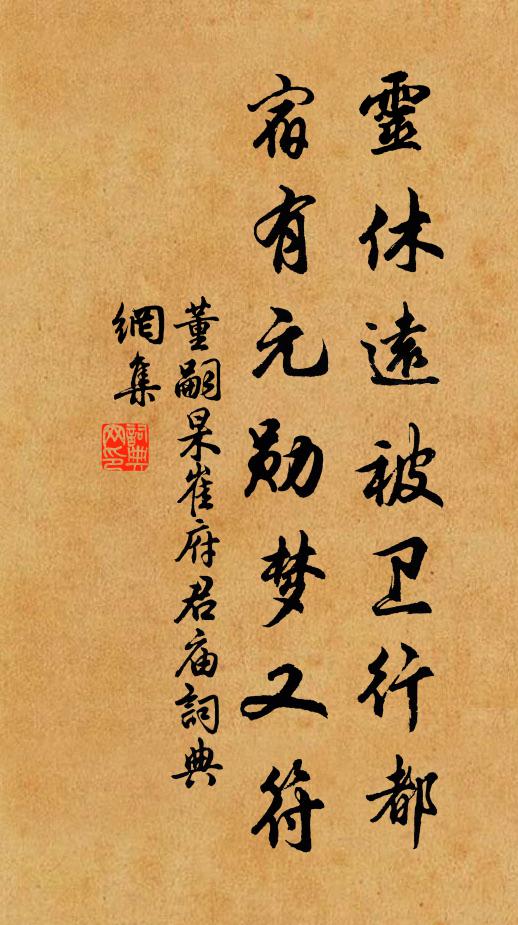 靈休遠被卫行都
宿有元勋梦又符
董嗣杲崔府君庙詞典
網集
詞典
网印